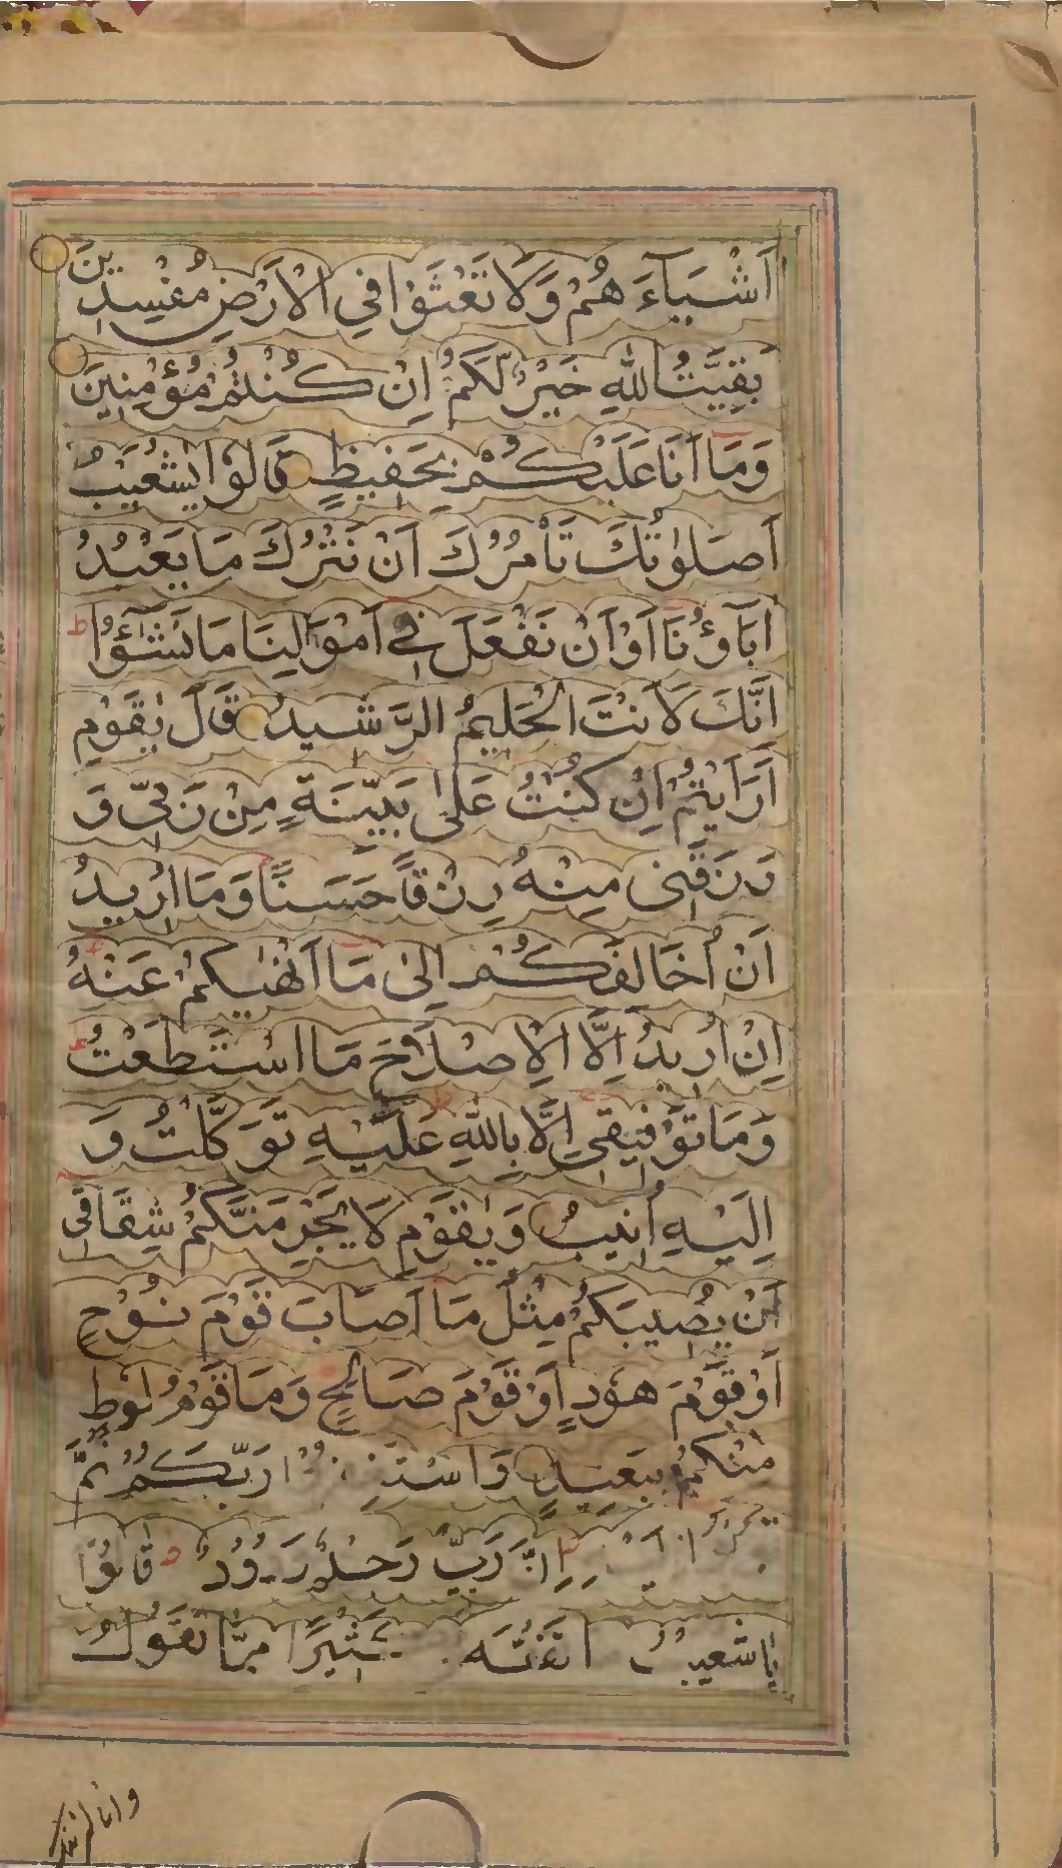 اَشْيَآءَ هُمْ وَلَا تَعْثَوْا فِي الْاَرْضِ مُفْسِدِينَ
بَقِيَّتُ اللّٰهِ خَيْرٌ لَّكُمْ اِنْ كُنْتُمْ مُؤْمِنِينَ
وَمَا اَنَا عَلَيْكُمْ بِحَفِيظٍ قَالُوْا يٰشُعَيْبُ
اَصَلٰوتُكَ تَاْمُرُكَ اَنْ نَتْرُكَ مَا يَعْبُدُ
اٰبَآؤُنَا اَوْ اَنْ نَفْعَلَ فِي اَمْوَالِنَا مَا نَشٰٓؤُا ط
اِنَّكَ لَاَنْتَ الْحَلِيمُ الرَّشِيدُ قَالَ يٰقَوْمِ
اَرَاَيْتُمْ اِنْ كُنْتُ عَلٰى بَيِّنَةٍ مِنْ رَبِّي وَ
رَزَقَنِي مِنْهُ رِزْقًا حَسَنًا وَمَا اُرِيدُ
اَنْ اُخَالِفَكُمْ اِلٰى مَا اَنْهٰيكُمْ عَنْهُ
اِنْ اُرِيدُ اِلَّا الْاِصْلَاحَ مَا اسْتَطَعْتُ
وَمَا تَوْفِيقِي اِلَّا بِاللّٰهِ عَلَيْهِ تَوَكَّلْتُ وَ
اِلَيْهِ اُنِيبُ وَيٰقَوْمِ لَا يَجْرِمَنَّكُمْ شِقَاقِي
اَنْ يُصِيبَكُمْ مِثْلُ مَا اَصَابَ قَوْمَ نُوْحٍ
اَوْ قَوْمَ هُوْدٍ اَوْ قَوْمَ صَالِحٍ وَمَا قَوْمُ لُوْطٍ
مِنْكُمْ بِبَعِيدٍ رَبَّكُمْ ثُمَّ
اِنَّ رَبِّي رَحِيمٌ وَدُوْدٌ قَالُوْا
يَا شُعَيْبُ كَثِيرًا مِمَّا تَقُوْلُ